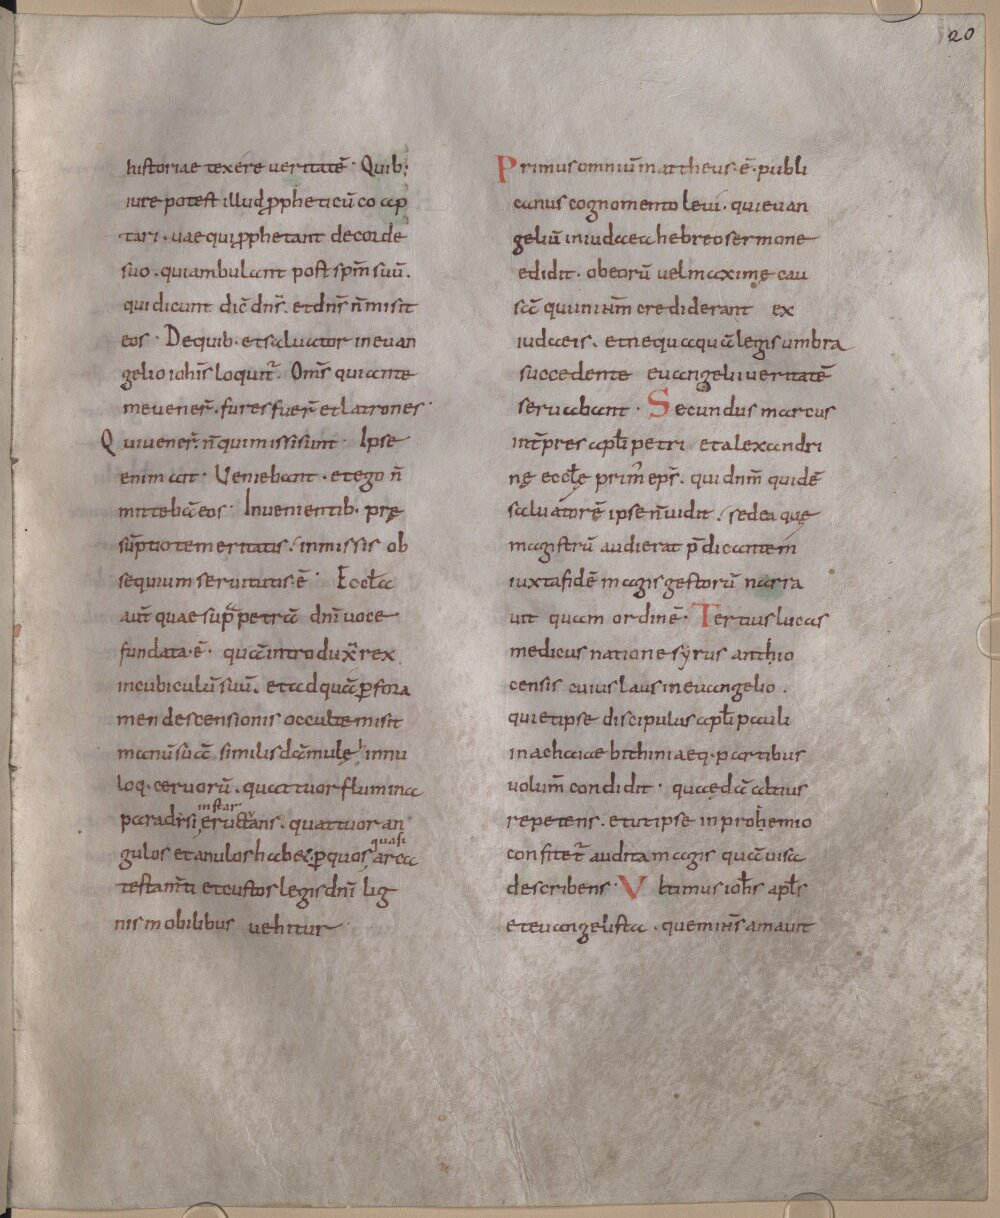 20
historiae texere veritatē· Quib;
iure potest illud ꝓpheticū co ap
tari· uae qui ꝓphetant de corde
suo· qui ambulant post spm̄ suū.
qui dicunt dic̄ dn̄s. et dn̄s n̄ misit
eos· De quib· et saluator in euan
gelio ioh̄is loquunt̄· Om̄s qui ante
me uener̄· fures fuer̄ et latrones·
Qui uener̄· n̄ qui missi sunt· Ipse
enim ait· Veniebant· et ego n̄
mittebā eos· In uenientib· pre̜
sūptio temeritatis· in missis ob
sequium seruitutis·ē· Eccƚa
aut̄ quae supra petrā dn̄i uoce
fundata·ē· quā introdux̄ rex
in cubiculū suū. et ad quā ꝑ fora
men descensionis occulte misit
manū suā similis dāmule̜ innu
loq· ceruorū· quattuor flumina
paradisi instar eructans· quattuor an
gulos et anulos habet ꝑ quos quasi arca
testam̄ti et custos legis dn̄i lig
nis mobilibus uehitur
Primus omniū mattheus·ē· publi
canus cognomento leui· qui euan
geliū in iudaea hebreo sermone
edidit· ob eorū uel maxime̜ cau
sā qui in ih̄m crediderant ex
iudaeis· et nequaquā legis umbra
succedente euangelii ueritatē
seruabant· Secundus marcus
int̄pres apƚi petri et alexandri
ne̜ eccƚe̜ prim̄ ep̄s· qui dn̄m quidē
saluatorē ipse n̄ uidit· sed ea que̜
magistrū audierat p̄dicantem
iuxta fidē magis gestorū narra
uit quam ordinē· Tertius lucas
medicus natione syrus anthio
censis cuius laus in euangelio·
qui et ipse discipulus apƚi pauli
in achaiae bithiniaeq· partibus
uolum̄ condidit· quae̜dā altius
repetens· et ut ipse in prohemio
confitet̄ audita magis quā uisa
describens· Vltimus ioh̄s apƚs
et euangelista· quem ih̄s amauit